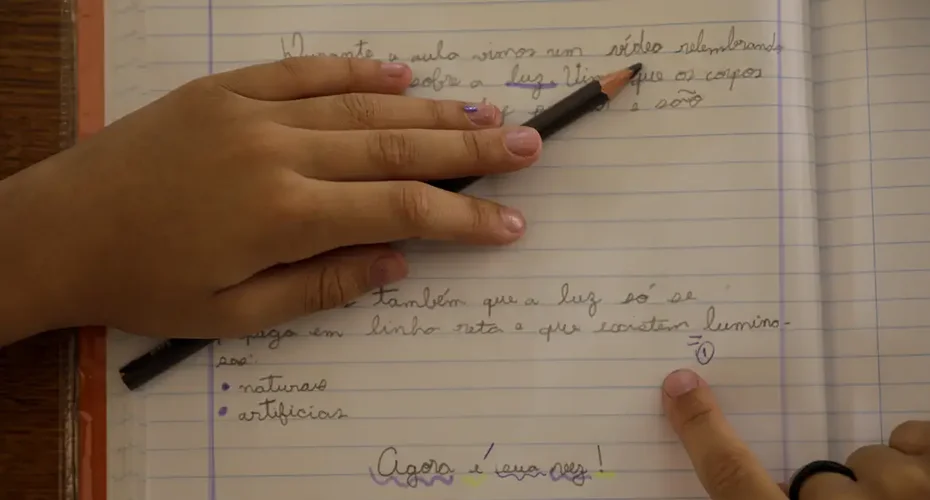 Durante a aula vimos um vídeo relembrando
sobre a luz. que os corpos
e são
também que a luz só se
em linha reta e que existem lumino-
sos:
• naturais
• artificias
①
Agora é sua vez!